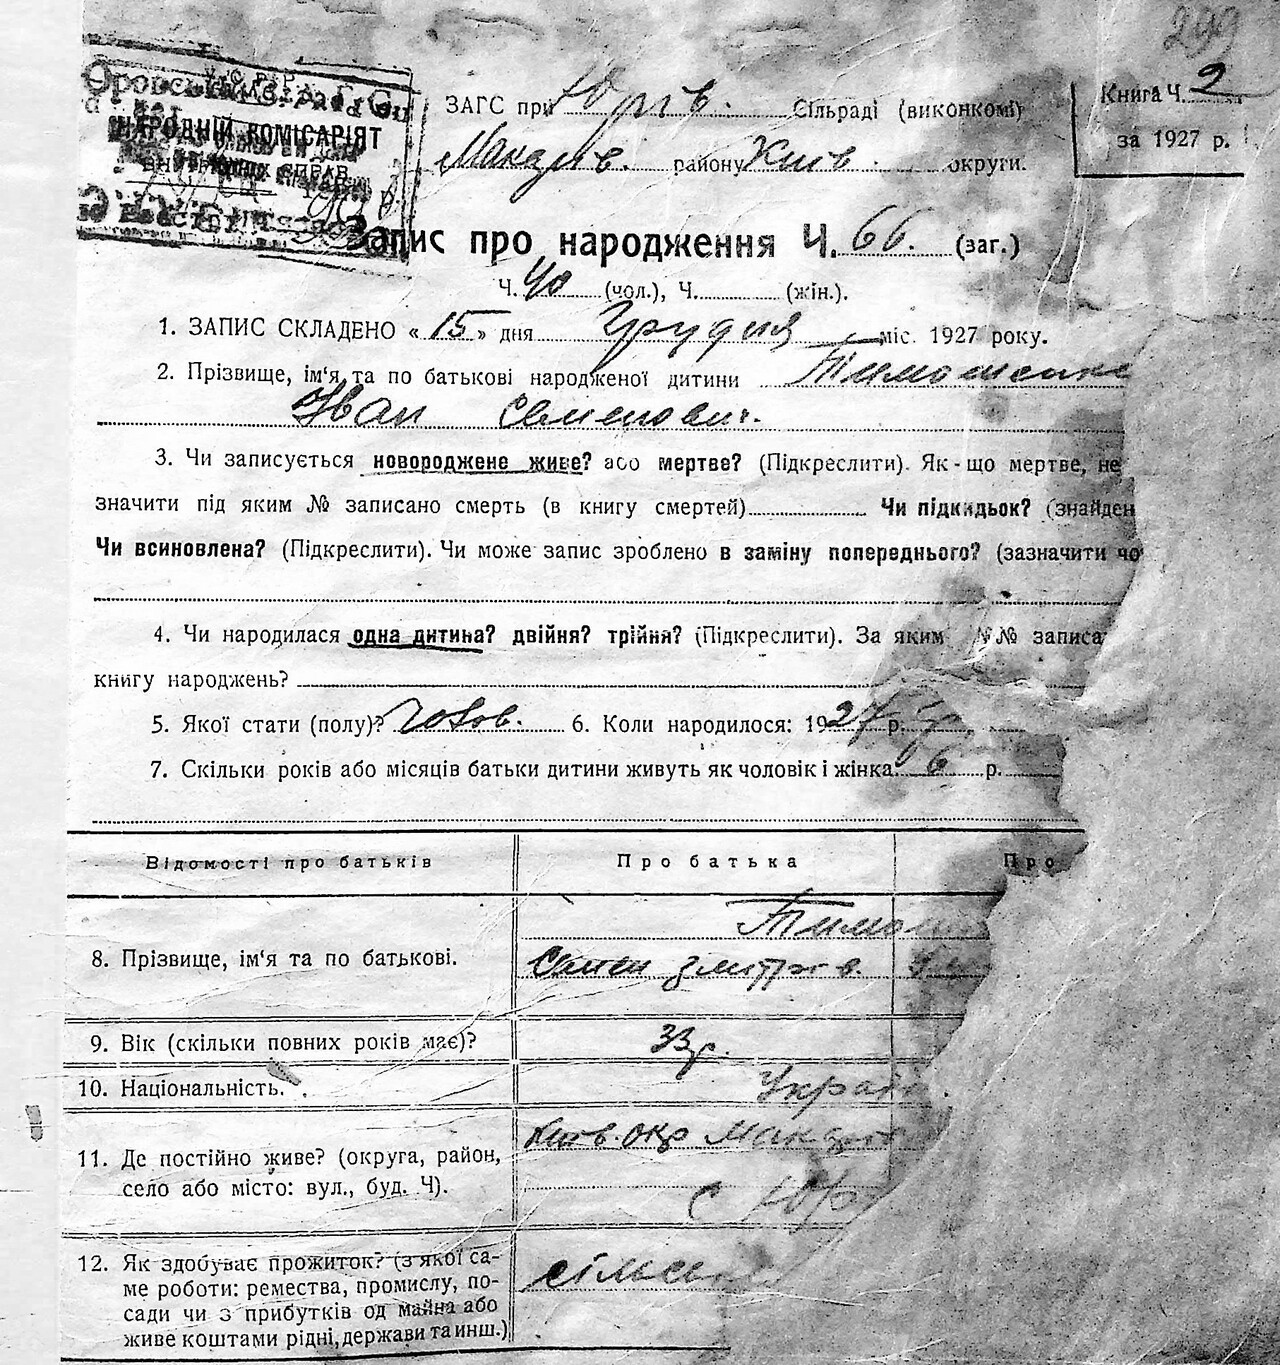 299
У.С.Р.Р.
НАРОДНІЙ КОМІСАРІЯТ
ВНУТРІШНІХ СПРАВ
Книга Ч. 2
за 1927 р.
ЗАГС при Юрів. Сільраді (виконкомі)
Макарів. району Київ. округи.
Запис про народження Ч. 66. (заг.)
Ч. 40 (чол.), Ч. (жін.).
1. ЗАПИС СКЛАДЕНО « 15 » дня Грудня міс. 1927 року.
2. Прізвище, ім‘я та по батькові народженої дитини Тимошенко
Іван Семенович.
3. Чи записується новороджене живе? або мертве? (Підкреслити). Як-що мертве,
значити під яким № записано смерть (в книгу смертей) Чи підкидьок? (знайден
Чи всиновлена? (Підкреслити). Чи може запис зроблено в заміну попереднього? (зазначити чо
4. Чи народилася одна дитина? двійня? трійня? (Підкреслити). За яким №№ записа
книгу народжень?
5. Якої стати (полу)? чолов. 6. Коли народилося: 1927 р.
7. Скільки років або місяців батьки дитини живуть як чоловік і жінка 6 р.
Відомості про батьків Про батька Про
8. Прізвище, ім‘я та по батькові. Тимо
Семен Дмитрів.
9. Вік (скільки повних років має)? 33 р.
10. Національність. Украї
11. Де постійно живе? (округа, район, Київ. окр Макар
село або місто: вул., буд. Ч). с Юр
12. Як здобуває прожиток? (з якої са- сільсь
ме роботи: ремества, промислу, по-
сади чи з прибутків од майна або
живе коштами рідні, держави та инш.)